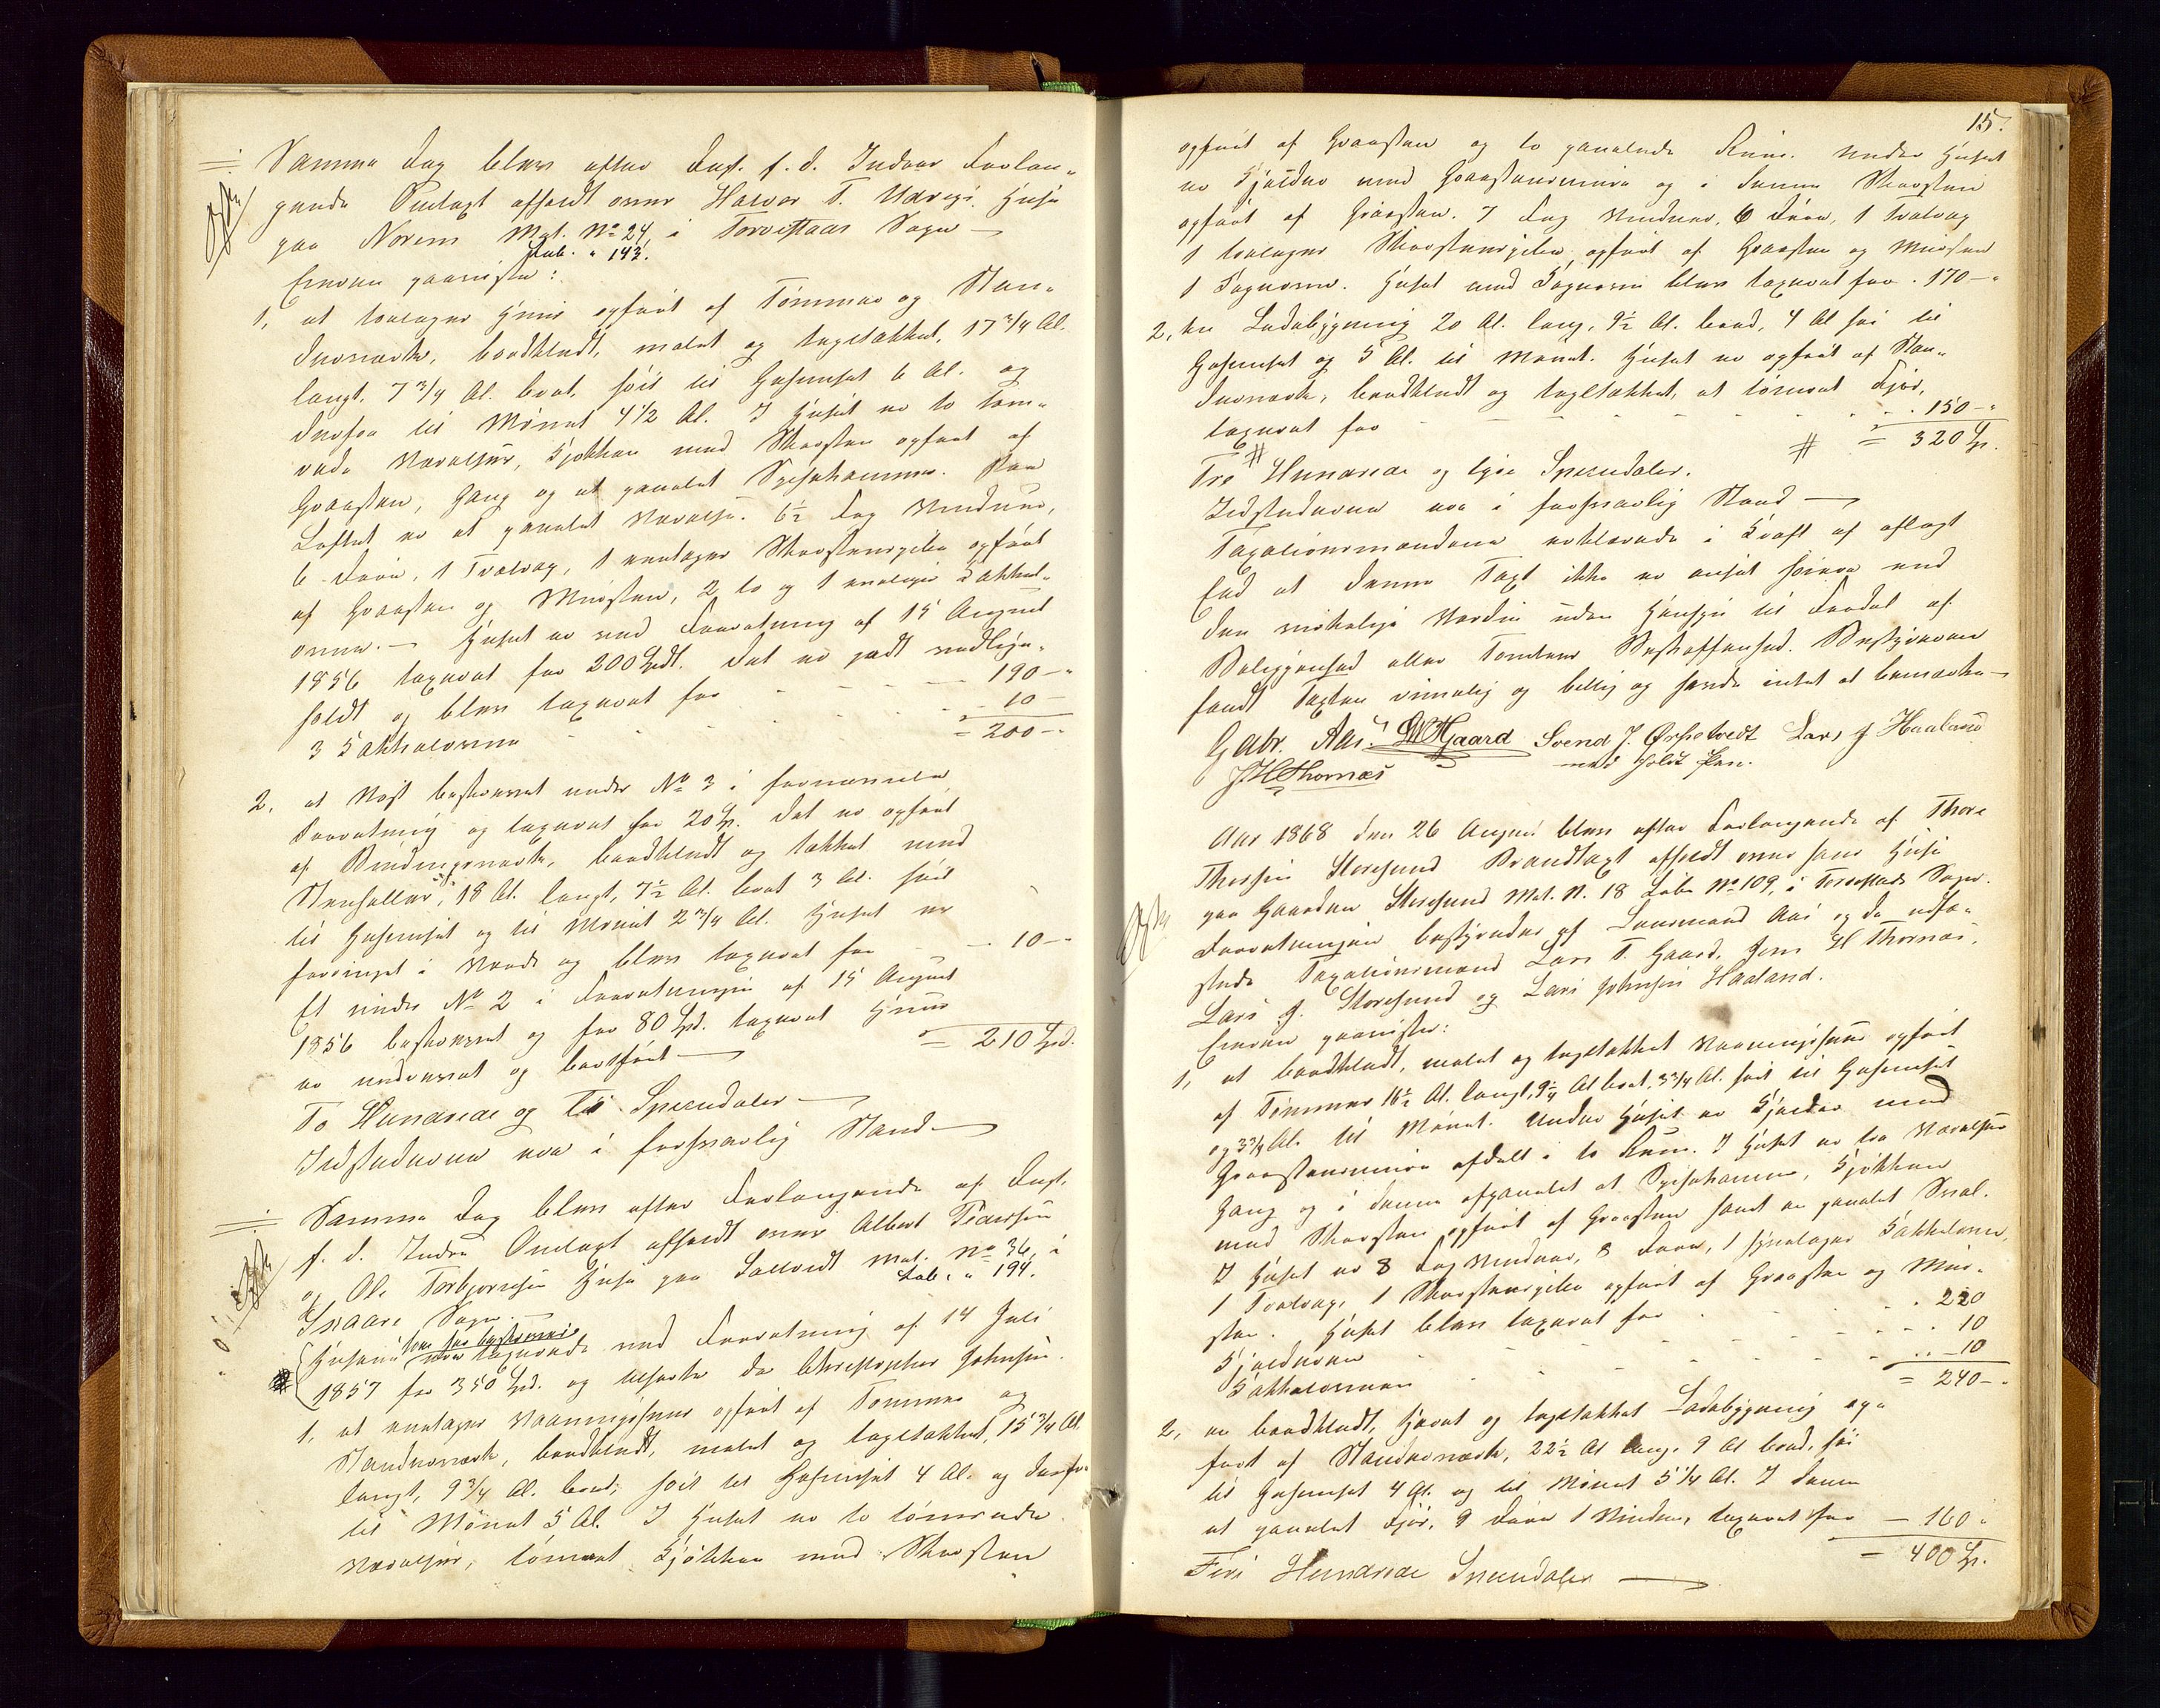 Samme Dag blev efter Dept. f. d. Indres Forlan-
gende Omtaxt afholdt over Halvor T. Utvigs Huse
paa Norem Mat. No 24, i Torvestads Sogn —
Løb. " 143.
Enhver paaviste:
1, et toetages Huus opført af Tømmer og Stan-
derværk, bordklædt, malet og tagsteakket, 17 3/4 Al.
langt, 7 3/4 Al. bredt, høit til Gesimset 6 Al. og
derfra til Mønet 4 1/2 Al. I Huset er to tøm-
rede Værelser, Kjøkken med Skorsten opført af
Graasten, Gang og et panelet Spisekammer. Paa
Loftet er et panelet Værelse. 6 1/2 Fag Vinduer,
6 Døre, 1 Trætrap, 1 eenetages Skorstenspibe opført
af Graasten og Muursten, 2 to og 1 enetages Kakkel-
ovne. — Huset er ved Forretning af 15 August
1856 taxeret for 200 Spdl. Det er godt vedlige-
holdt og blev taxeret for - - - 190 — "
3 Kakkelovne - - - 10 —
= 200 — "
2, et Nøst beskrevet under No 3 i fornævnte
Forretning og taxeret for 20 Sp. Det er opført
af Bindingsværk, bordklædt og tækket med
Steenheller, 18 Al. langt, 7 1/2 Al. bredt 3 Al. høit
til Gesimset og til Mønet 2 3/4 Al. Huset er
forringet i Værdi og blev taxeret for - - 10 — "
Et under No 2 i Forretningen af 15 August
1856 beskrevet og for 80 Spd. taxeret Huus
er nedrevet og bortført —
= 210 Spd.
To Hundrede og Ti Speciedaler —
Ildstederne var i forsvarlig Stand —
Samme Dag blev efter Forlangende af Dept.
f. d. Indre Omtaxt afholdt over Albert Pedersen
og Ole Torbjørnsen Huse paa Sallvedt Mat. No 36, i
Løb. " 194.
Skaare Sogn —
Husene som her beskrives var taxerede ved Forretning af 14 Juli
1857 for 350 Spd. og tilhørte da Christopher Johnsen.
1, et eenetages Vaaningshuus opført af Tømmer og
Standerværk, bordklædt, malet og tagsteakket, 15 3/4 Al.
langt, 9 3/4 Al. bredt, høit til Gesimset 4 Al. og derfra
til Mønet 5 Al. I Huset er to tømrede
Værelser, tømret Kjøkken med Skorsten
15.
opført af Graasten og to panelede Rum. Under Huset
er Kjælder med Graasteensmure og i denne Skorsten
opført af Graasten. 7 Fag Vinduer, 6 Døre, 1 Trætrap
1 toetages Skorstenspibe opført af Graasten og Muursten
1 Bagerovn. Huset med Bagerovn blev taxeret for . 170 — "
2, en Ladebygning 20 Al. lang, 9 1/2 Al. bred, 4 Al høi til
Gesimset og 5 Al. til Mønet. Huset er opført af Stan-
derværk, bordklædt og tagsteakket, et tømret Fjøs,
taxeret for - - - 150 — "
= 320 Sp.
Tre Hundrede og tyve Speciedaler.
Ildstederne var i forsvarlig Stand —
Taxationsmændene erklærede i Kraft af aflagt
Eed at denne Taxt ikke er ansat høiere end
den virkelige Værdi uden Hensyn til Fordel af
Beliggenhed eller Tomtens Beskaffenhed. Bestyreren
fandt Taxten rimelig og billig og havde intet at bemærke —
Gabr. Aas. LTGaard Svend J. Ørpetvedt Lars J Haaland
JHThornæs med holdt Pen.
Aar 1868 den 26 August blev efter Forlangende af Thore
Thorsen Storesund Brandtaxt afholdt over hans Huse
paa Gaarden Storesund Mat. N. 18 Løbe No 109, i Torvestads Sogn.
Forretningen bestyredes af Lensmand Aas og de udsæ-
stede Taxationsmænd Lars T. Gaard, Jens H Thornæs,
Lars J. Storesund og Lars Johnsen Haaland.
Enhver paaviste:
1, et bordklædt, malet og tagsteakket Vaaningshuus opført
af Tømmer 16 1/2 Al. langt, 9 1/4 Al bredt, 3 3/4 Al. høit til Gesimset
og 3 3/4 Al. til Mønet. Under Huset er Kjælder med
Graasteensmure afdelt i to Rum. I Huset er tre Værelser
Gang og i denne afpanelet et Spisekammer, Kjøkken
med Skorsten opført af Graasten samt en panelet Sval.
I Huset er 8 Fag Vinduer, 8 Døre, 1 Kakkelovn,
1 Trætrap, 1 Skorstenspibe opført af Graasten og Muur-
sten. Huset blev taxeret for - - - 220
Kjælderen - - - 10
Kakkelovnen - - - 10
= 240 — "
2, en bordklædt, tjæret og tagsteakket Ladebygning op-
ført af Standerværk, 22 1/2 Al lang, 9 Al bred, høi
til Gesimset 4 Al. og til Mønet 5 1/4 Al. I denne
et panelet Fjøs, 9 Døre 1 Vindue, taxeret for — 160 "
= 400 Sp.
Fire Hundrede Speciedaler —